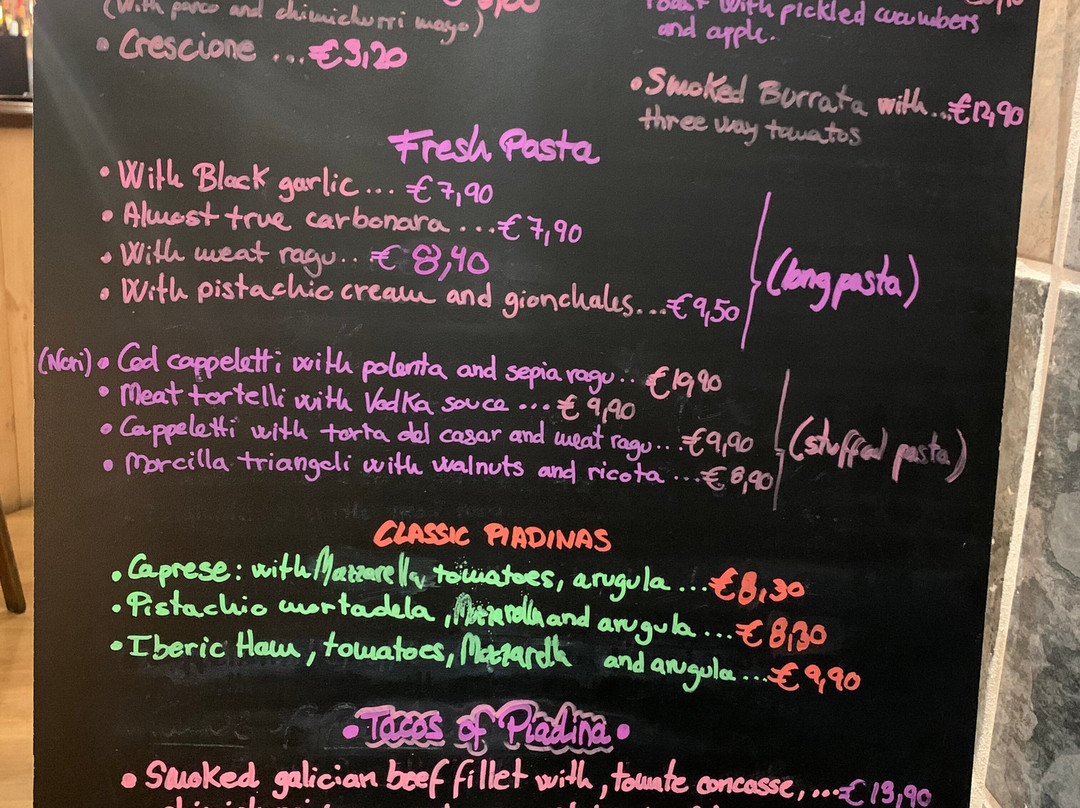 (With panco and chimichurri mayo)
• Crescione ... €3,20
roast with pickled cucumbers
and apple.
• Smoked Burrata with... €12,90
three way tomatos
Fresh Pasta
• With Black garlic... €7,90
• Almost true carbonara ... €7,90
• With meat ragu.. € 8,40
• With pistachic cream and gionchales... €9,50
(long pasta)
• Cod cappeletti with polenta and sepia ragu.. €19,90
• Meat tortelli with Vodka souce ... € 9,90
• Cappeletti with torta del casar and meat ragu... €9,90
• Morcilla triangoli with walnuts and ricota ... €8,90
(stuffed pasta)
CLASSIC PIADINAS
• Caprese: with Mazzarella tomatoes, arugula ... €8,30
• Pistachio mortadela, Mozzarella and arugula ... €8,30
• Iberic Ham, tomatoes, Mozzarella and arugula ... €9,90
• Tacos of Piadina •
• Smoked galician beef fillet with, tomate concasse, ... €13,90